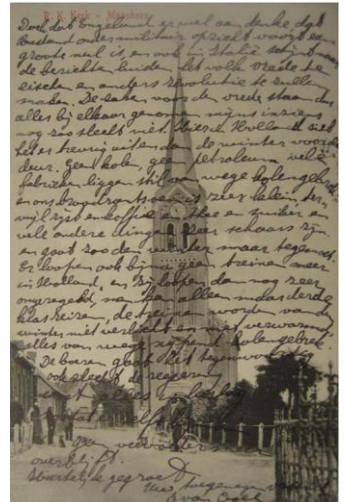 R. K. Kerk - Maasbree
Doch dat Engeland er wel aan denke dat
Rusland onder militair opzicht voorge
groote nul is, en ook in Italië schijnt naar
de berichten luiden het volk vrede te
eischen en anders revolutie te zullen
maken. De zaken voor den vrede staan dus
alles bij elkaar genomen mijns inziens
nog zoo slecht niet. Hier in Holland ziet
het er treurig uit en dan de winter voor de
deur. Geen kolen, geen petroleum, vele
fabrieken liggen stil van wege kolengebrek
en ons broodrantsoen is zeer klein, ter-
wijl rijst en koffie en thee en suiker en
vele andere dingen zeer schaars zijn
en gaat zoo den winter maar tegemoet.
Er loopen ook bijna geen treinen meer
in Holland, en zij loopen dan nog zeer
ongeregeld, men kan alleen maar derde
klas reizen, de treinen worden van de
winter niet verlicht en niet verwarmd
alles van wege nijpend kolengebrek
De boeren gaat het tegenwoordig
ook slecht de regeering
alles in beslag
geen
overblijft.
Hartelijk gegroet
Uw toegenegen
van